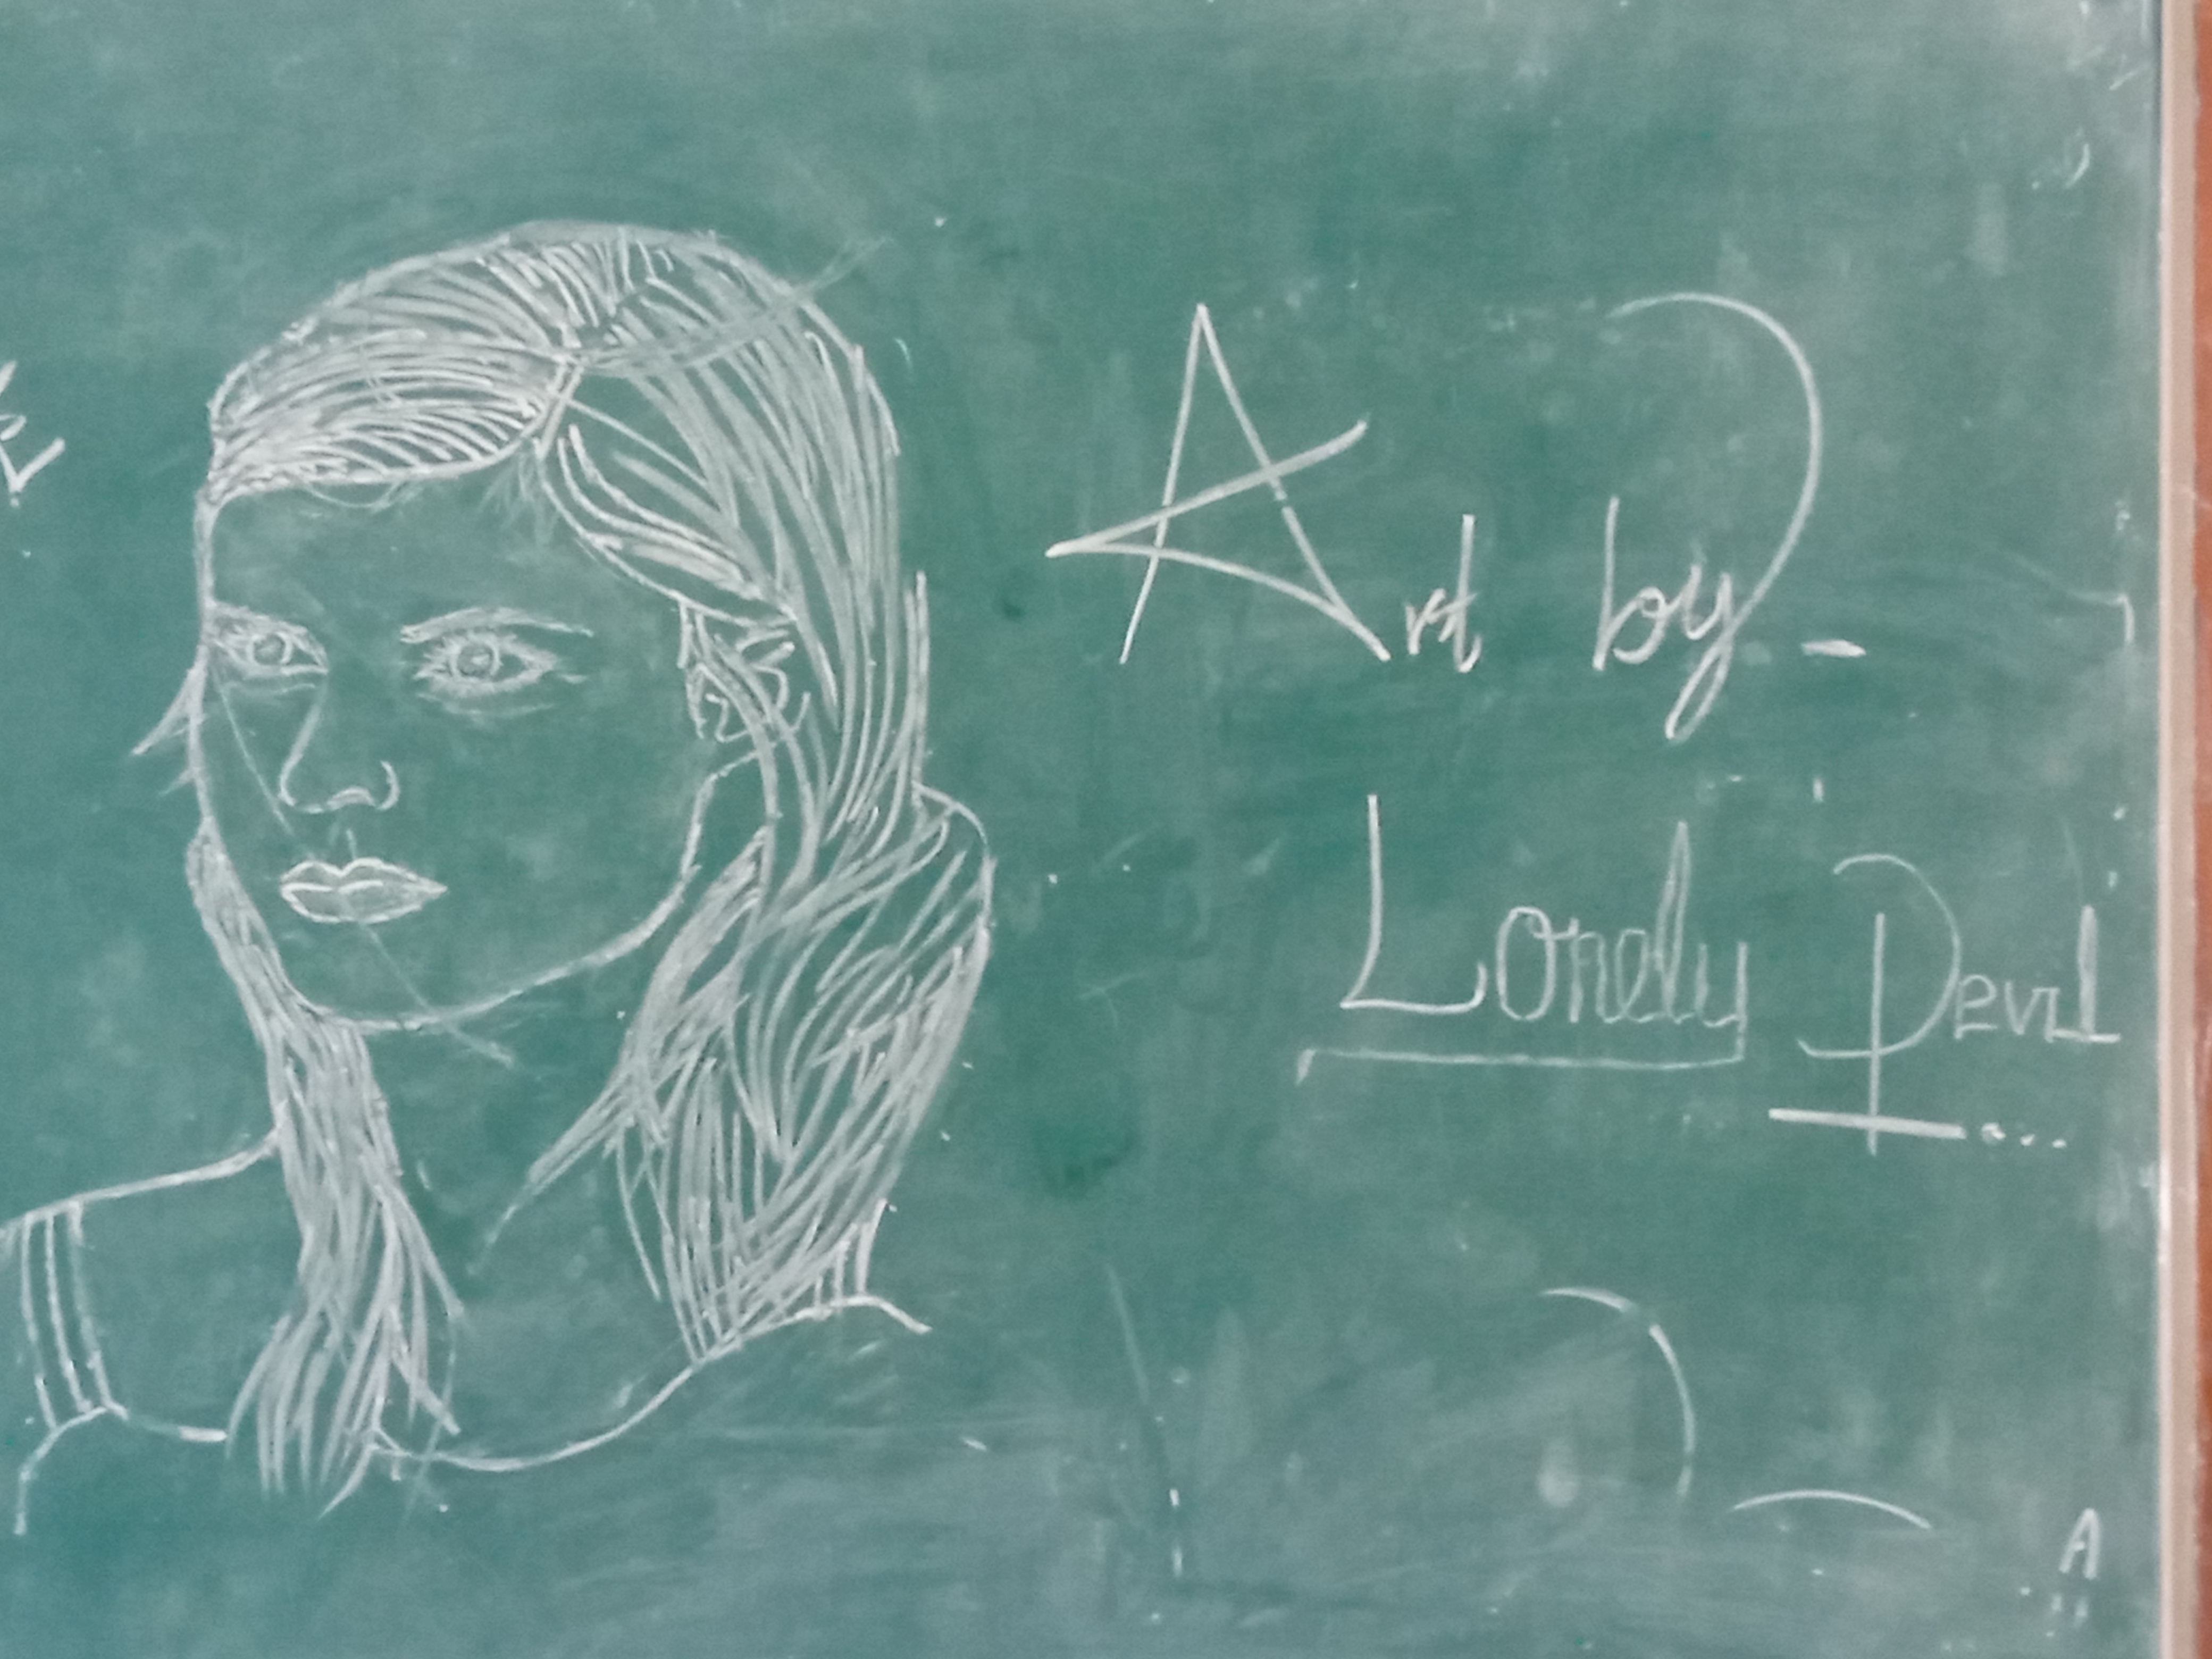 Art by -
Lonely Devil...
A